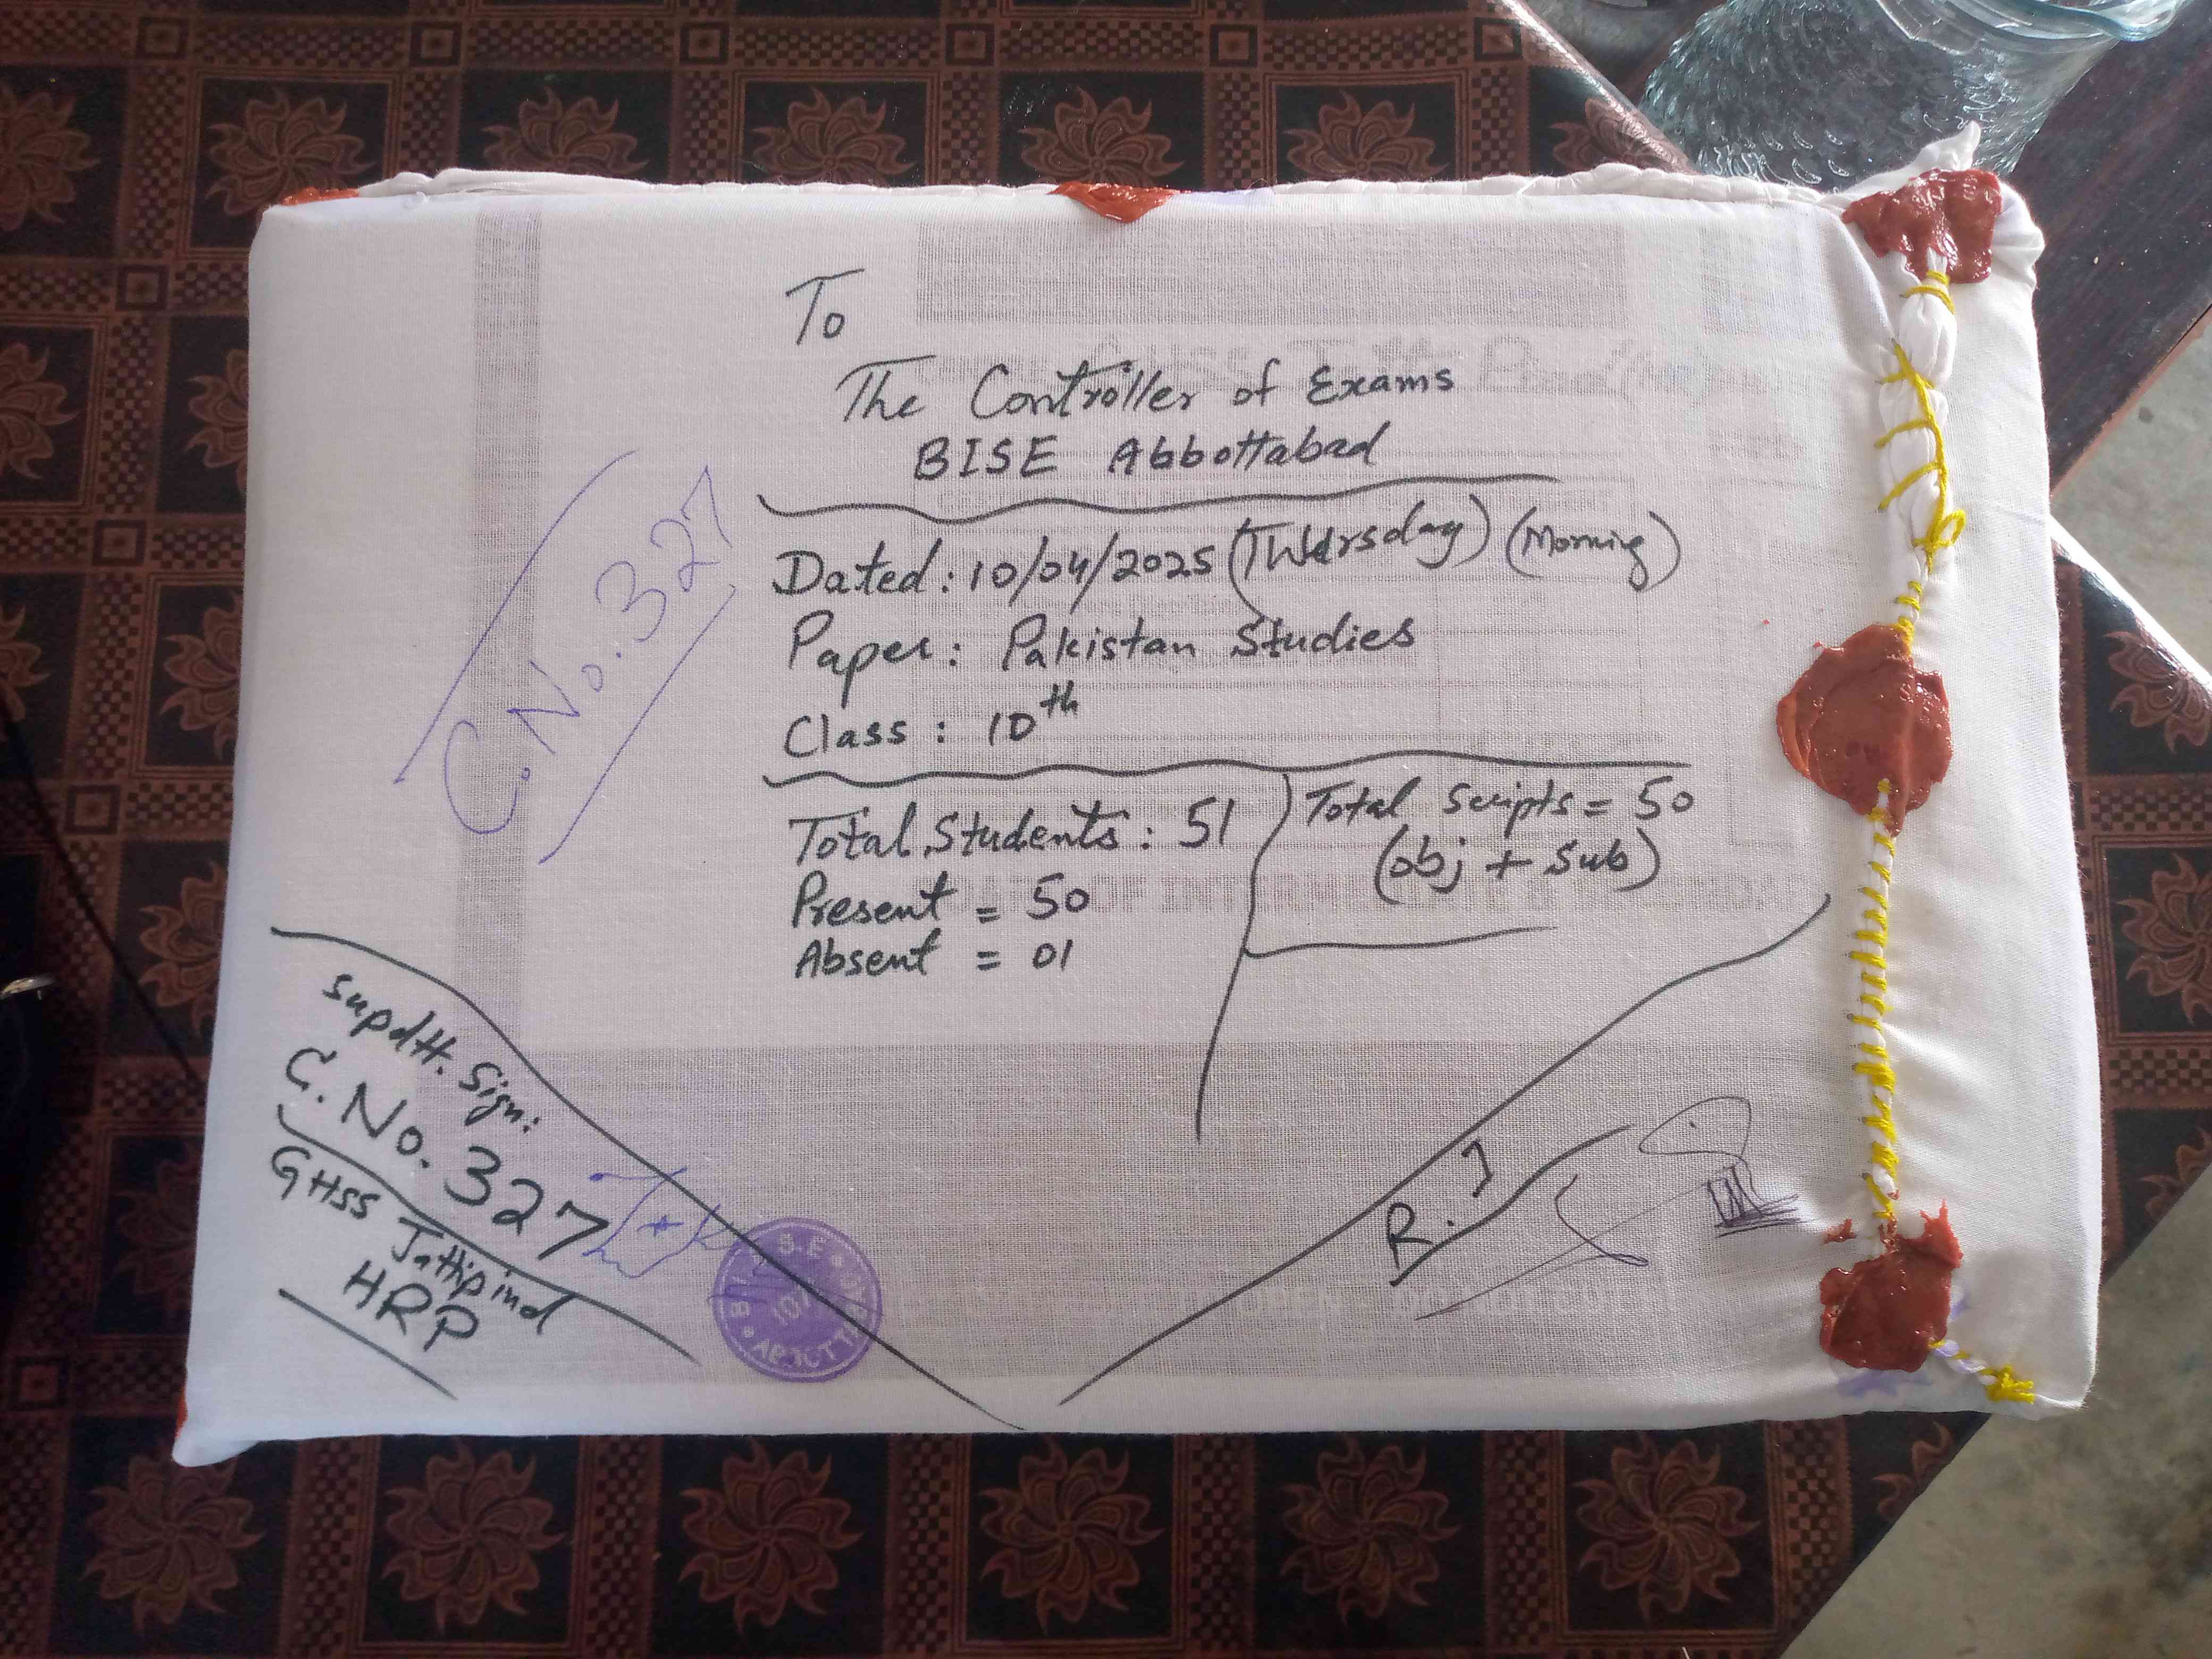 To
The Controller of Exams
BISE Abbottabad
C.No.327
Dated: 10/04/2025 (Thursday) (Morning)
Paper: Pakistan Studies
Class: 10th
Total Students: 51
Present = 50
Absent = 01
Total Scripts = 50
(obj + sub)
Supdtt. Sign:
C. No. 327
GHSS Jattipind
HRP
R. I
OF INTERM